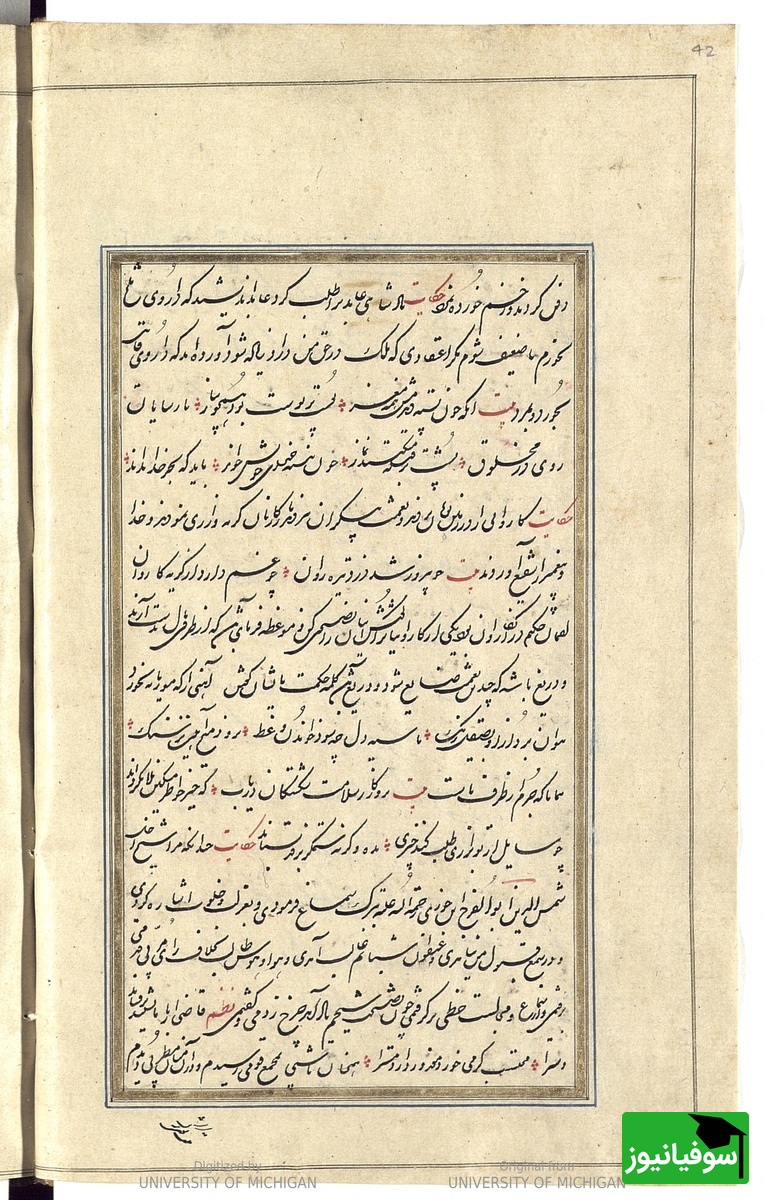 42
دفن کردند و زخم خورده بود حکایت پادشاهی عابدی را طلب کرد عابد اندیشید که داروی
بخورم تا ضعیف شوم مگر اعتقادی که ملک در حق من دارد زیاده شود آورده اند که داروی قاتل
بخورد و بمرد بیت آنکه چون پسته دیدمش همه مغز پوست بر پوست بود همچو پیاز پارسایان
روی در مخلوق پشت بر قبله میکنند نماز چون بنده خدای خویش خواند باید که بجز خدا نداند
حکایت کاروانی را در زمین یونان بزدند و نعمت بیکران ببردند کاروانیان گریه و زاری نمودند و خدا
و پیغمبر را شفیع آوردند بیت چو پیروز شد دزد تیره روان چه غم دارد از گریه کاروان
لقمان حکیم در آن کاروان بود یکی از کاروانیان گفتش اینان را نصیحتی کن و موعظه فرمای که طرفی از مال ما دست بدارند
و دریغ باشد که چندین نعمت ضایع شود و دریغ کلمه حکمت با ایشان گفتن آهنی را که موریانه بخورد
نتوان برد ازو بصیقل زنگ با سیه دل چه سود خواندن وعظ نرود میخ آهنی بر سنگ
همانا که جرم از طرف ماست بیت بروزگار سلامت شکستگان دریاب که جبر خاطر مسکین بلا بگرداند
چو سایل از تو بزاری طلب کند چیزی بده وگرنه ستمگر بزور بستاند حکایت چندانکه مرا شیخ اجل
شمس الدین ابو الفرج ابن جوزی رحمة الله علیه ترک سماع فرمودی و بعزلت و خلوت اشارت کردی
عنفوان شبابم غالب آمدی و هوا و هوس طالب بخلاف رای مربی قدمی
برفتمی و از سماع و مجالست حظی برگرفتمی چون نصیحت شیخم یاد آمدی گفتمی نظم قاضی ار با ما نشیند برفشاند
دست را محتسب گر می خورد معذور دارد مست را همچنان تا شبی بمجمع قومی رسیدم و در آن میان مطربی دیدم
Digitized by
UNIVERSITY OF MICHIGAN
Original from
UNIVERSITY OF MICHIGAN
سوفیانیوز